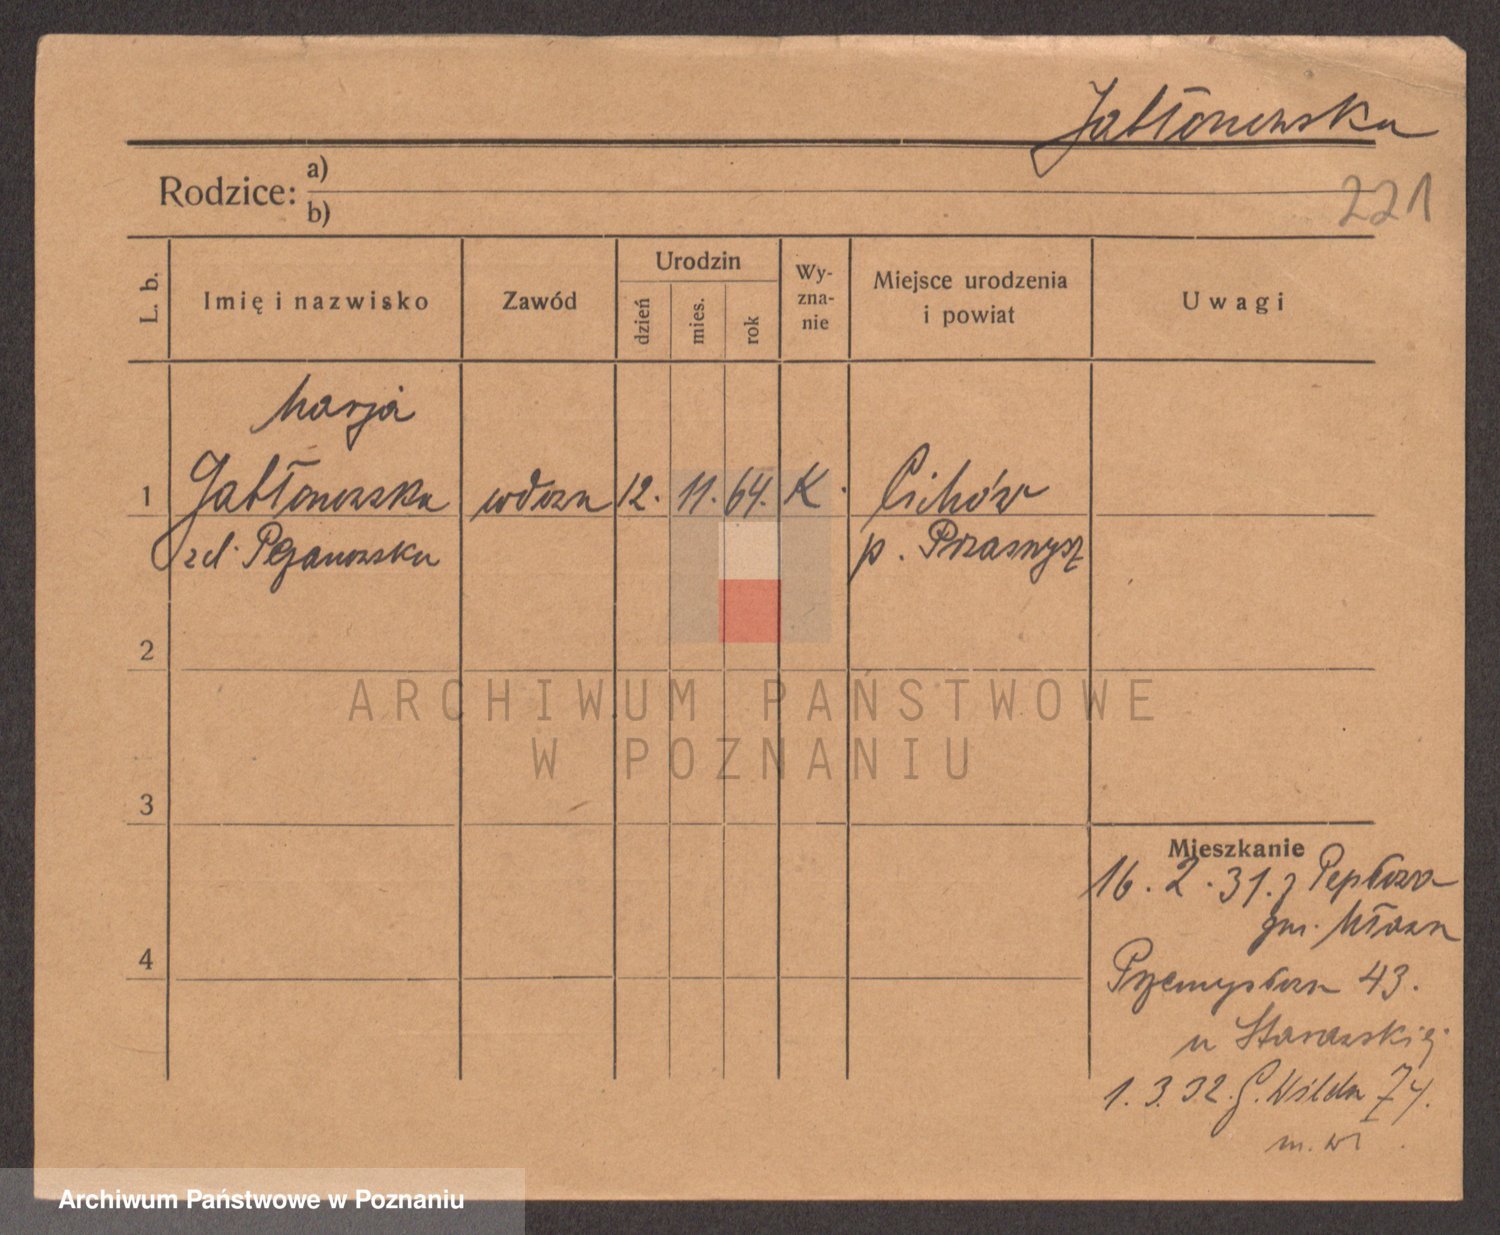 Jabłonowska
221
Rodzice: a)
b)
L. b.
Imię i nazwisko
Zawód
Urodzin
dzień
mies.
rok
Wy-
zna-
nie
Miejsce urodzenia
i powiat
Uwagi
Marja
1 Jabłonowska wdowa 12. 11. 64. K. Cichów
zd. p. Przasnysz
2
3
4
ARCHIWUM PAŃSTWOWE
W POZNANIU
Mieszkanie
16. 2. 31. z
gm. Mława
Przemysłowa 43.
u
1. 3. 32. G. Wilda 74.
Archiwum Państwowe w Poznaniu